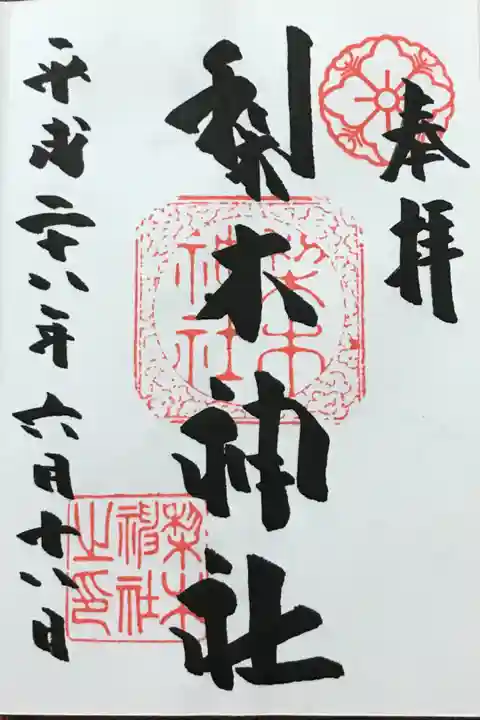 奉拝
梨木神社
梨木神社
梨木神社之印
平成二十八年六月十八日